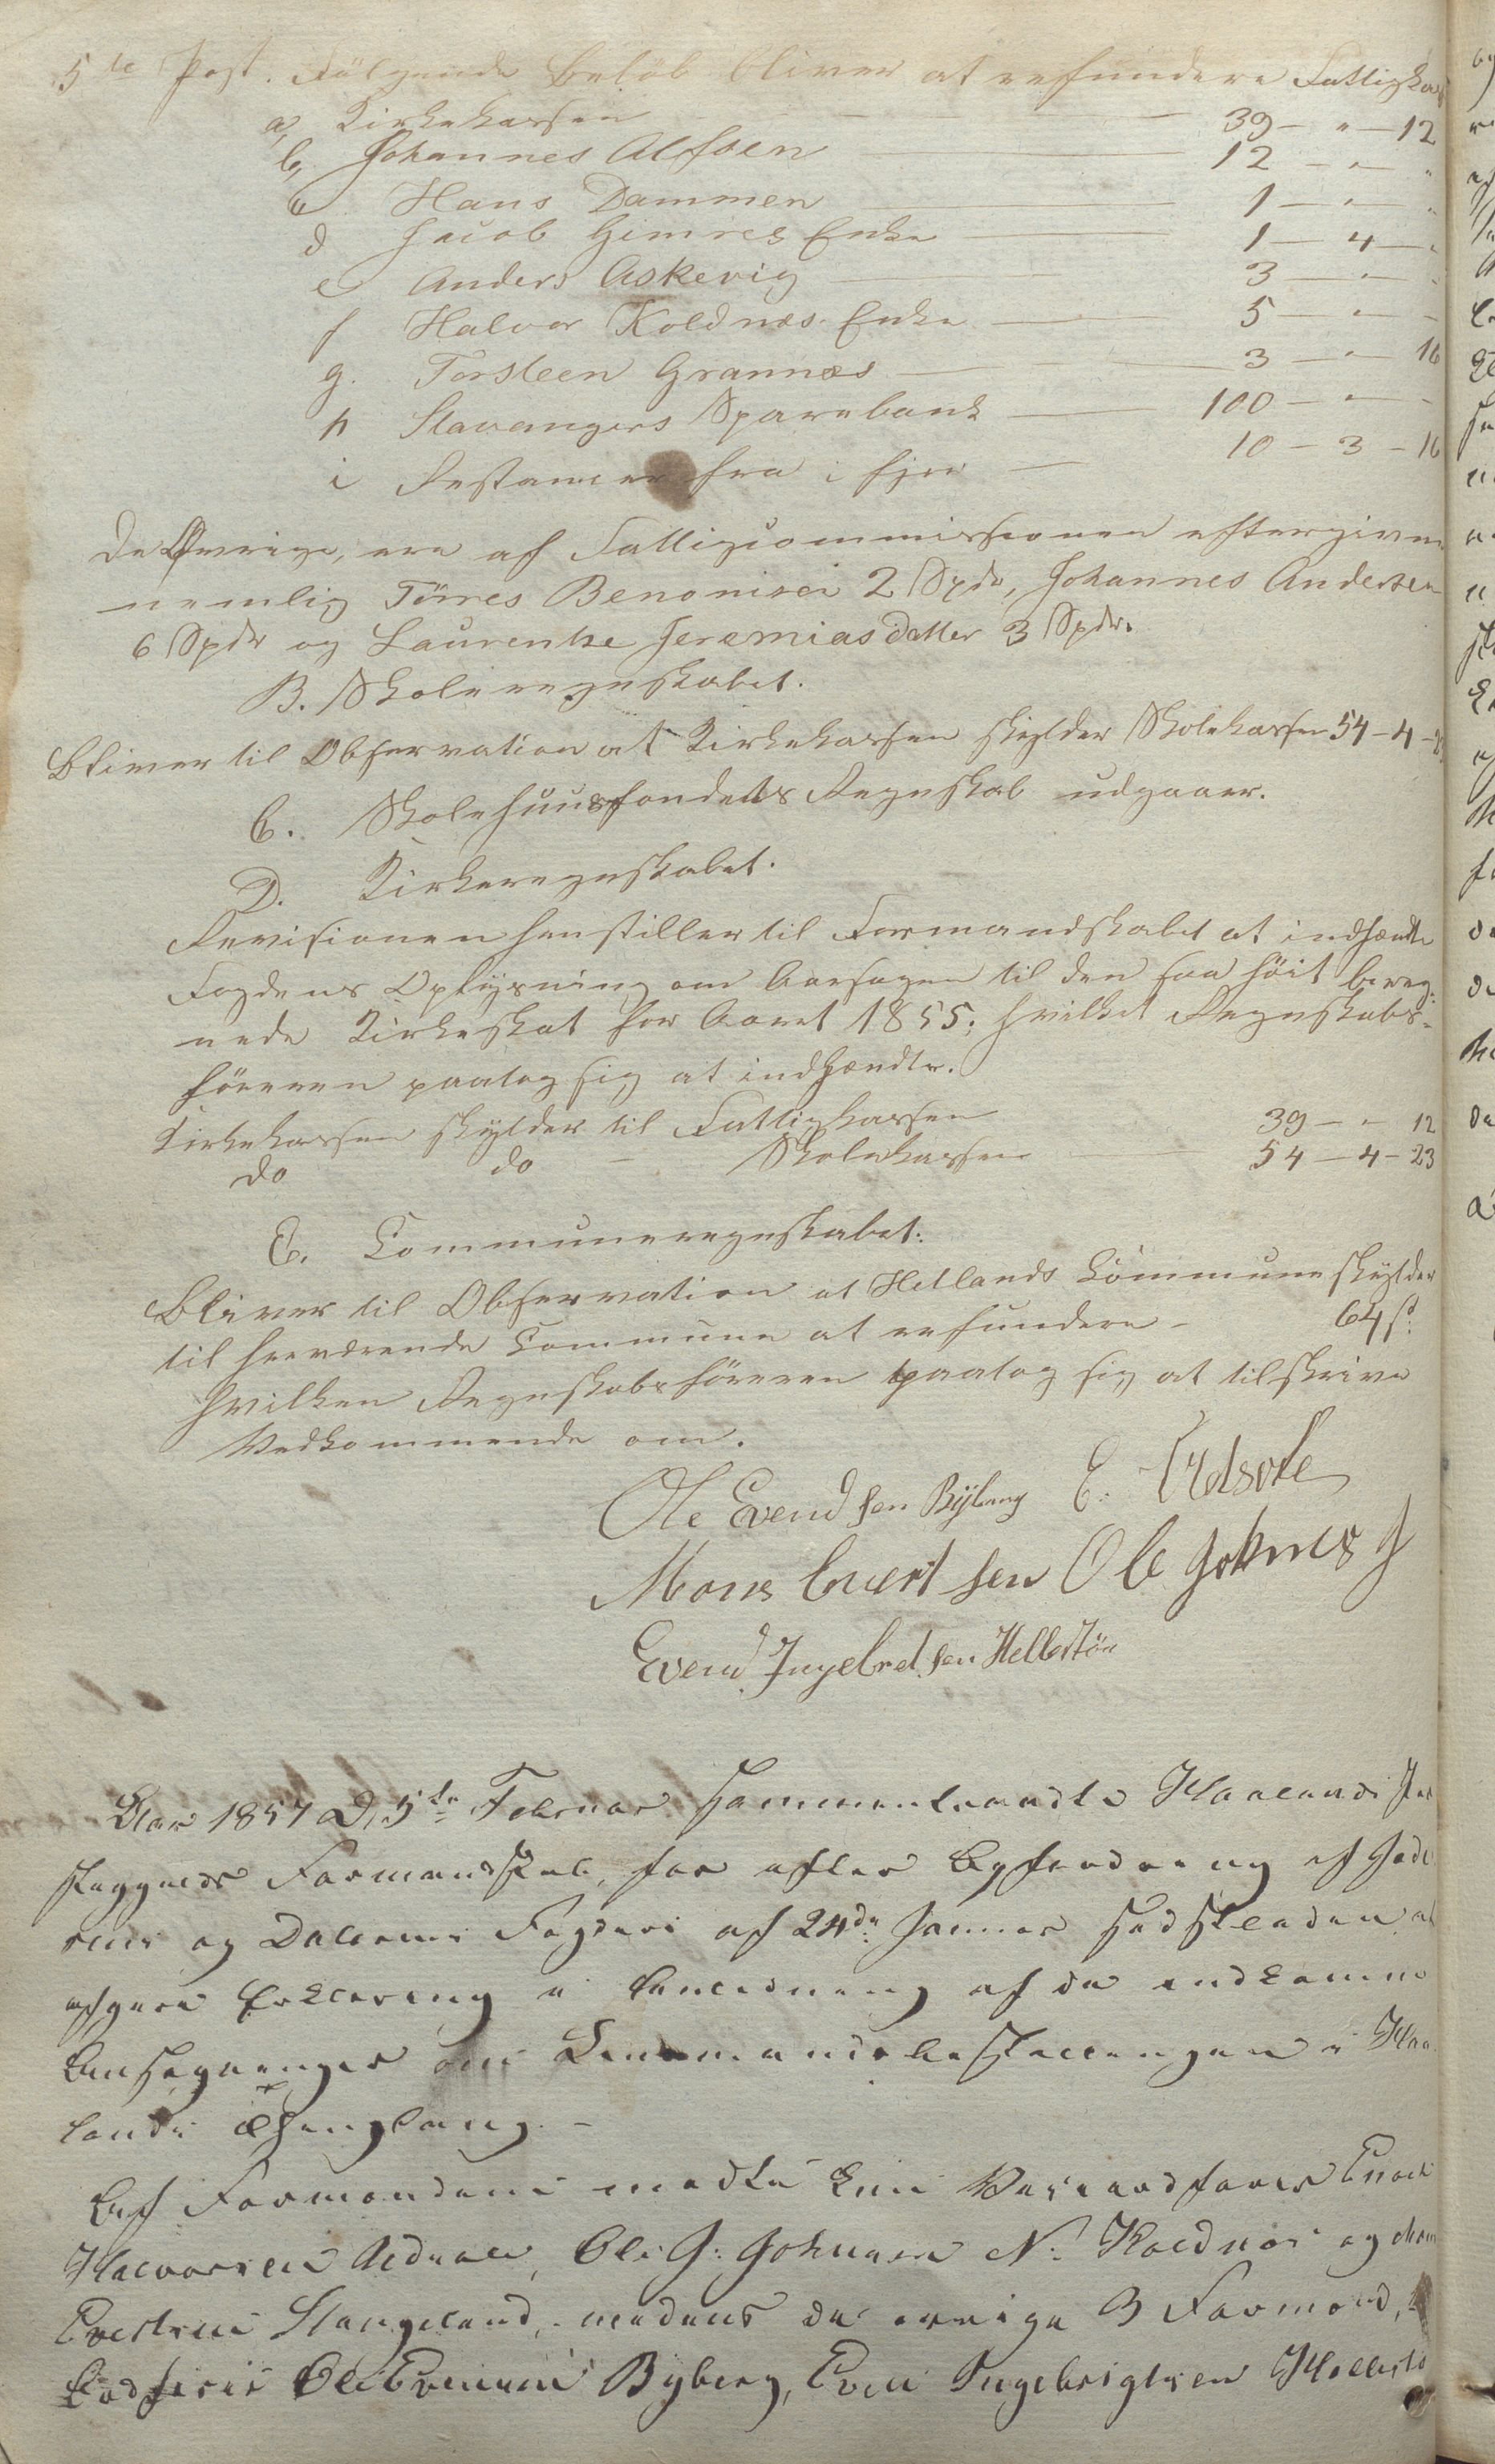 5te Post. Følgende Beløb bliver at refundere Fattigkas
a, Kirkekassen — 39 – " – 12
b, Johannes Alfsen — 12 – " – "
c Hans Dammen — 1 – " – "
d Jacob Gimres Enke — 1 – 4 – "
e Anders Askevig — 3 – " – "
f Halvor Koldnæs Enke — 5 – " – "
g. Torsteen Grannæs — 3 – " – 16
h Stavangers Sparebank — 100 – " – "
i Restancer fra i fjor — 10 – 3 – 16
De Øvrige, ere af Fattigcommissionen eftergivne
nemlig Törres Benonisen 2 Spdr, Johannes Andersen
6 Spdr og Laurentse Jeremiasdatter 3 Spdr.
B. Skoleregnskabet.
Bliver til Observation at Kirkekassen skylder Skolekassen 54 – 4 – 23
C. Skolehuusfondets Regnskab udgaaer.
D. Kirkeregnskabet.
Revisionen henstiller til Formandskabet at indhændte
Fogdens Oplysning om Aarsagen til den saa höit bereg-
nede Kirkeskat for Aaret 1855; hvilket Regnskabs-
föreren paatog sig at indhændte.
Kirkekassen skylder til Fattigkassen 39 – " – 12
do do – Skolekassen — 54 – 4 – 23
E. Communeregnskabet.
Bliver til Observation at Hetlands Commune skylder
til herværende Commune at refundere – 64 s
hvilken Regnskabsföreren paatog sig at tilskrive
Vedkommende om.
Ole Evendsen Byberg E.
Mons Evertsen Ole Johnes J
Evend Ingebretsen Hellestöe
Aar 1857 D. 5te Februar sammentraadte Haalands Præ
stegjelds Formandskab, for efter Opfordring af Jæde
rens og Dalernes Fogderi af 24de Januar sidstleden at
afgive Erklæring i Anledning af de indkomne
Ansøgninger om Lensmandsbestillingen i Haa
lands Thinglaug. –
Af Formændene mødte kun Viceordfører Enock
Halvorsen , Ole J: Johnsen N: Koldnæs og Mons
Evertsen Stangeland, medens de øvrige 3 Formænd,
Ordfører Ole Evensen Byberg, Even Ingebrigtsen Hellestø